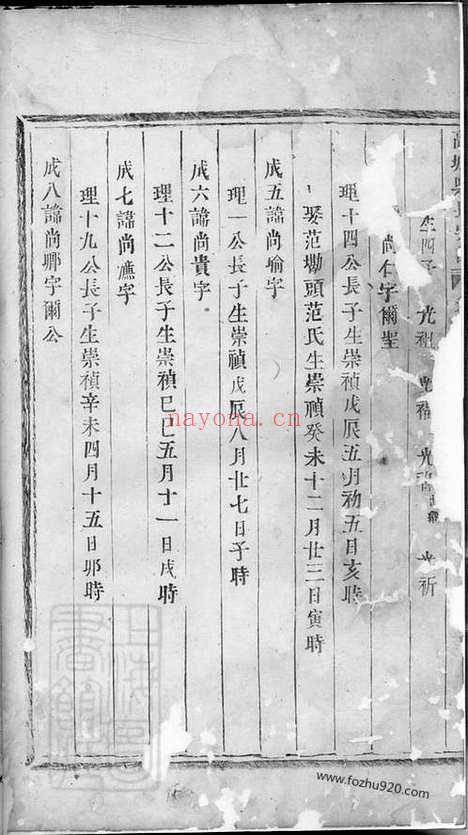 生四子 光祖 光
光祈
尚仁字爾聖
理十四公長子生崇禎戊辰五月初五日亥時
娶范墈頭范氏生崇禎癸未十二月廿三日寅時
成五諱尚瑜字
理一公長子生崇禎戊辰八月廿七日子時
成六諱尚貴字
理十二公長子生崇禎巳巳五月十一日戌時
成七諱尚應字
理十九公長子生崇禎辛未四月十五日卯時
成八諱尚卿字爾公
nayona.cn
www.fozhu920.com